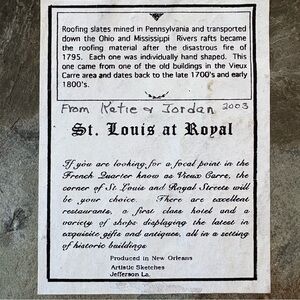 Roofing slates mined in Pennsylvania and transported
down the Ohio and Mississippi Rivers rafts became
the roofing material after the disastrous fire of
1795. Each one was individually hand shaped. This
one came from one of the old buildings in the Vieux
Carre area and dates back to the late 1700's and early
1800's.
From Katie & Jordan 2003
St. Louis at Royal
If you are looking for a focal point in the
French Quarter know as Vieux Carre, the
corner of St. Louis and Royal Streets will
be your choice. There are excellent
restaurants, a first class hotel and a
variety of shops displaying the latest in
exquisite gifts and antiques, all in a setting
of historic buildings
Produced in New Orleans
Artistic Sketches
Jefferson La.